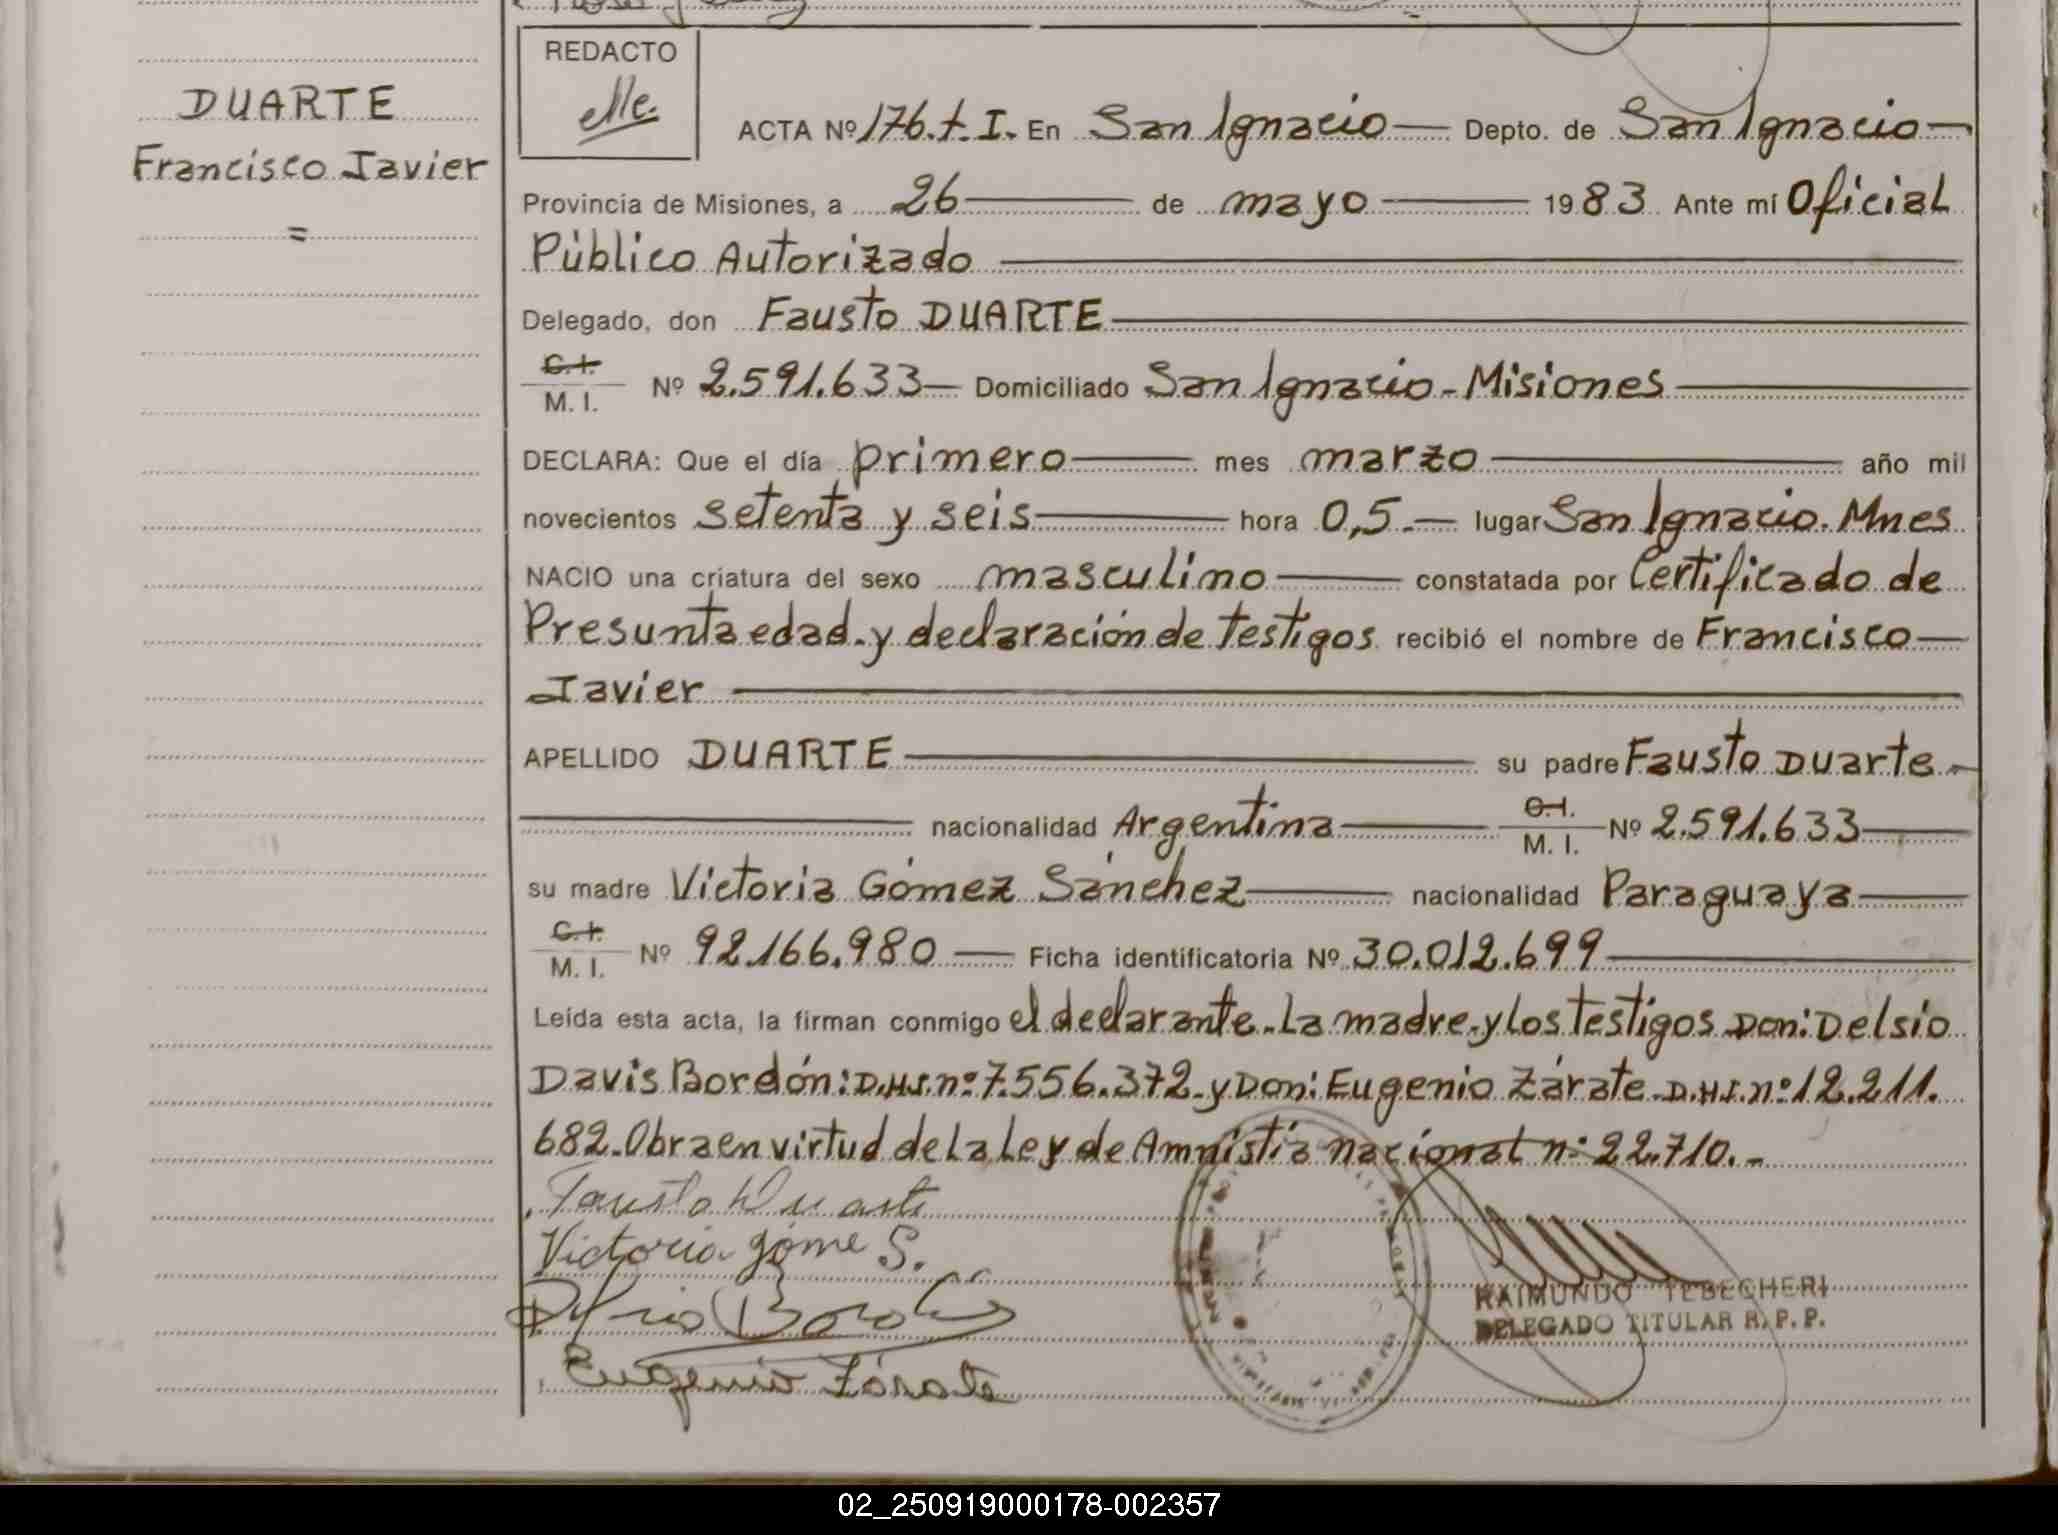 DUARTE
Francisco Javier
=
REDACTO
ACTA Nº 176.t.I. En San Ignacio — Depto. de San Ignacio —
Provincia de Misiones, a 26 — de mayo — 1983 Ante mí Oficial
Público Autorizado —
Delegado, don Fausto DUARTE —
C.I.
M. I. Nº 2.591.633 — Domiciliado San Ignacio - Misiones —
DECLARA: Que el día primero — mes marzo — año mil
novecientos setenta y seis — hora 0,5.— lugar San Ignacio. Mnes
NACIO una criatura del sexo masculino — constatada por Certificado de
Presunta edad. y declaración de testigos recibió el nombre de Francisco —
Javier —
APELLIDO DUARTE — su padre Fausto Duarte —
— nacionalidad Argentina — C.I.
M. I. Nº 2.591.633 —
su madre Victoria Gómez Sánchez — nacionalidad Paraguaya —
C.I.
M. I. Nº 92.166.980 — Ficha identificatoria Nº 30.012.699 —
Leída esta acta, la firman conmigo el declarante. La madre. y los testigos Don: Delsio
Davis Bordón: D.N.I. nº 7.556.372. y Don: Eugenio Zárate. D.N.I. nº 12.211.
682. Obra en virtud de la Ley de Amnistía nacional nº 22.710.-
Fausto Duarte
Victoria gome S.
Bordón
Eugenio Zárate
RAIMUNDO TEBECHERI
DELEGADO TITULAR R. P. P.
02_250919000178-002357